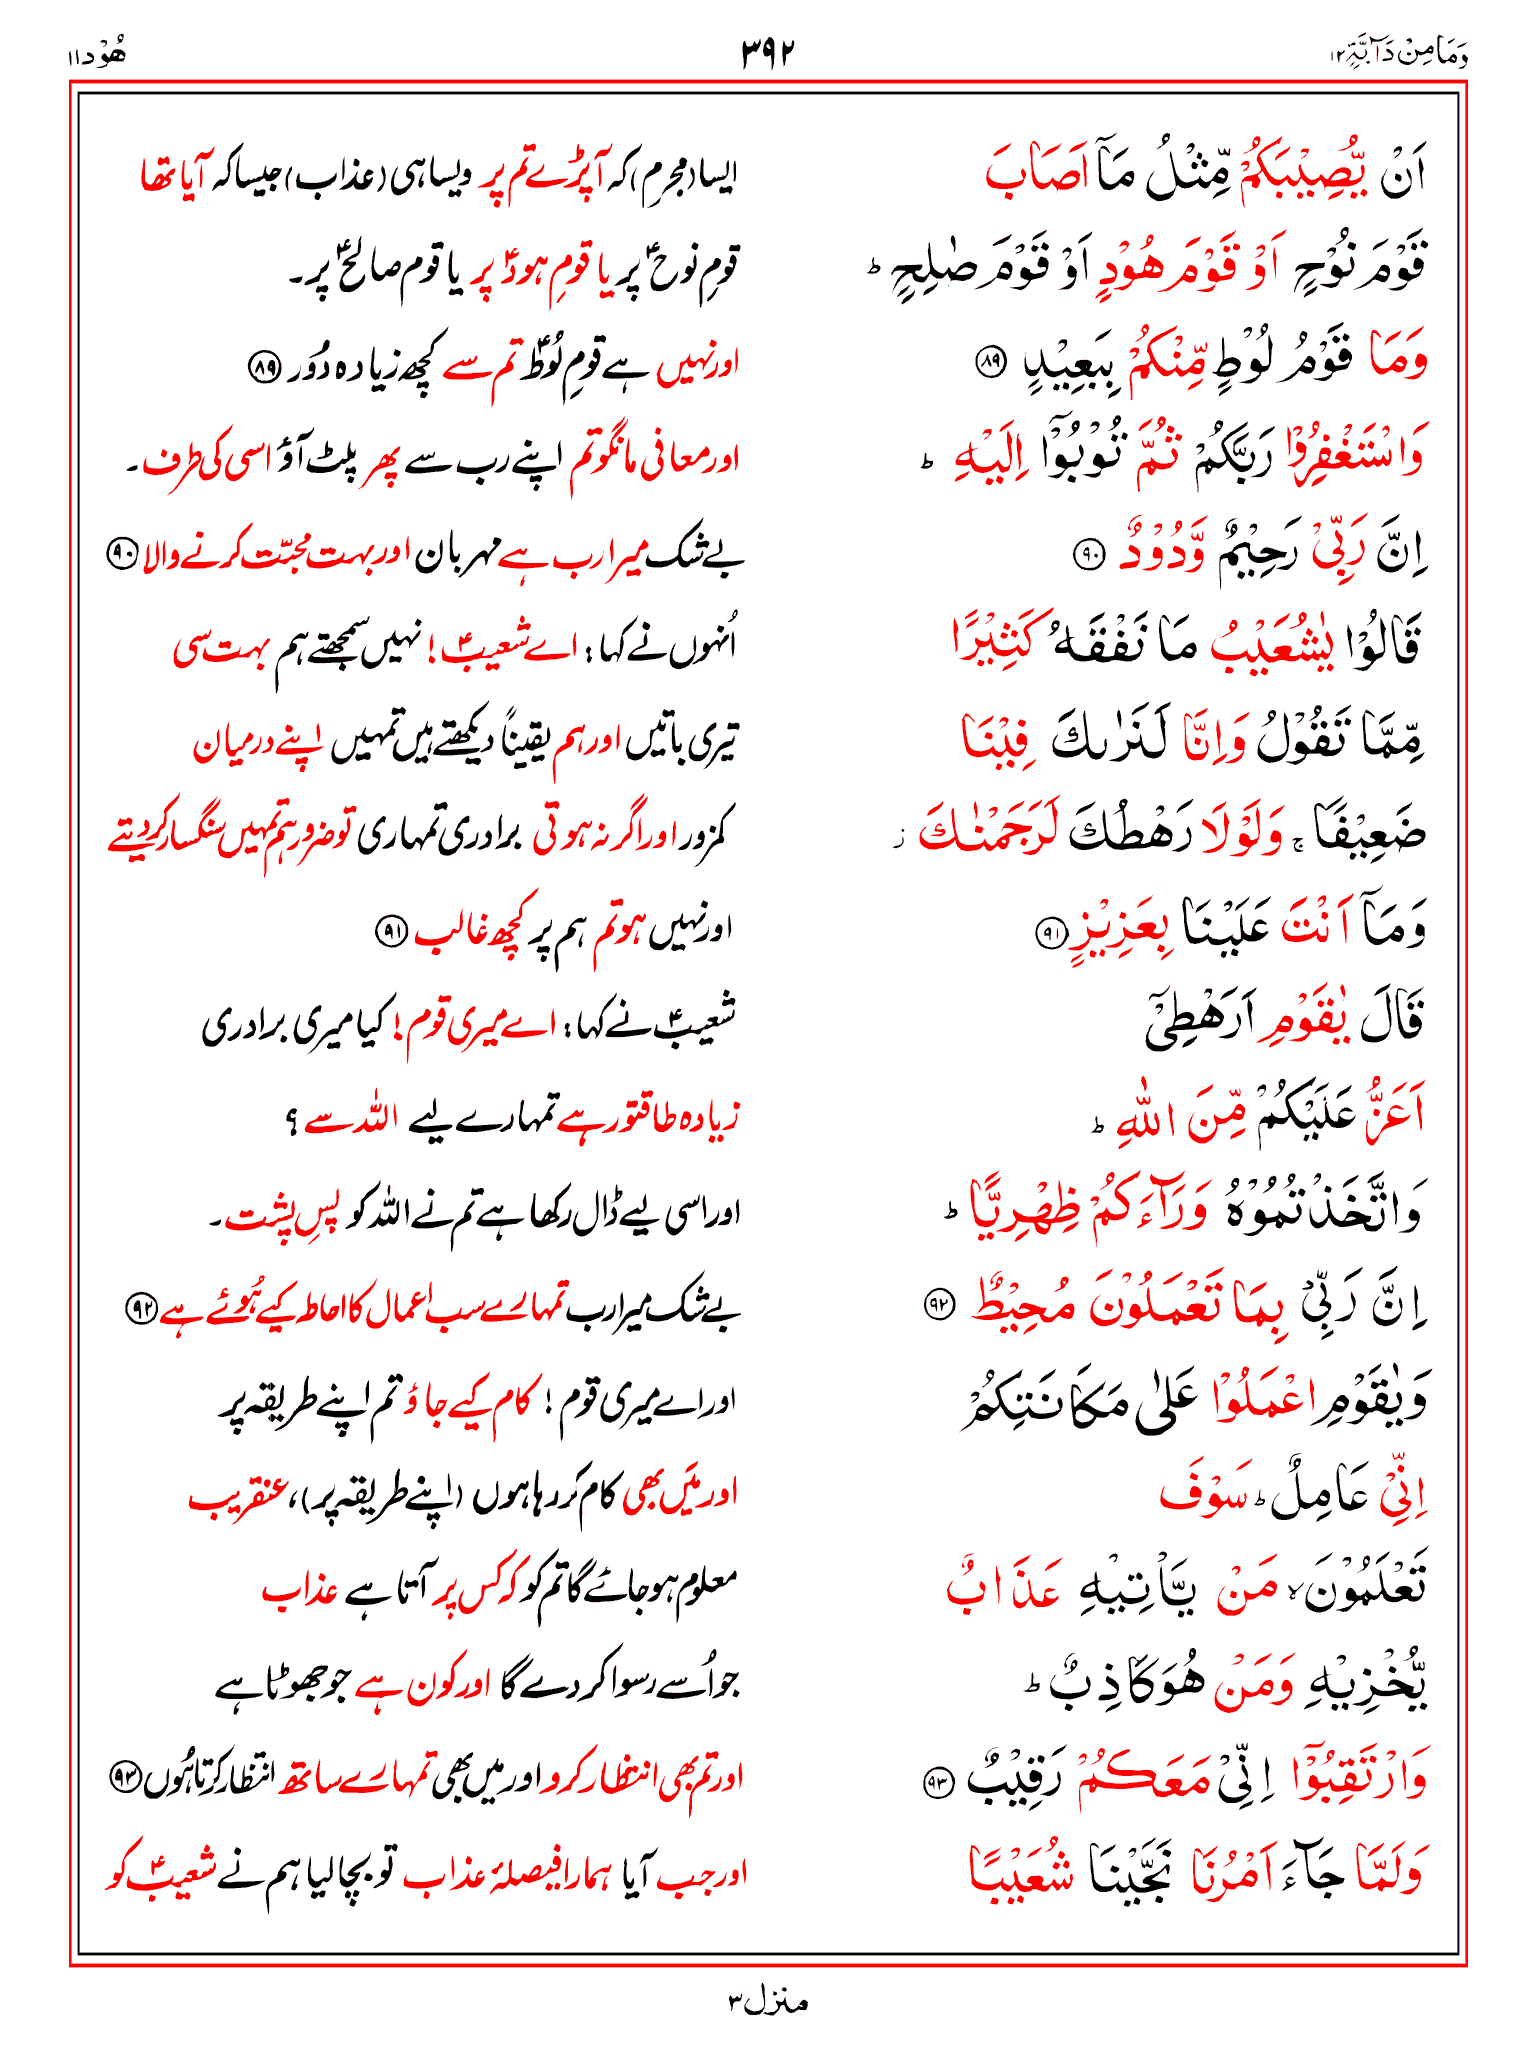 وَمَا مِنْ دَآبَّۃٍ ۱۲ ۳۹۲ ھُوْد ۱۱
اَنْ یُّصِیْبَكُمْ مِّثْلُ مَاۤ اَصَابَ ایسا (مجرم) کہ آپڑے تم پر ویسا ہی (عذاب) جیسا کہ آیا تھا
قَوْمَ نُوْحٍ اَوْ قَوْمَ هُوْدٍ اَوْ قَوْمَ صٰلِحٍ ؕ قومِ نوحؑ پر یا قومِ ہودؑ پر یا قوم صالحؑ پر۔
وَمَا قَوْمُ لُوْطٍ مِّنْكُمْ بِبَعِیْدٍ ۸۹ اور نہیں ہے قومِ لُوطؑ تم سے کچھ زیادہ دُور ۸۹
وَاسْتَغْفِرُوْا رَبَّكُمْ ثُمَّ تُوْبُوْۤا اِلَیْهِ ؕ اور معافی مانگو تم اپنے رب سے پھر پلٹ آؤ اسی کی طرف۔
اِنَّ رَبِّیْ رَحِیْمٌ وَّدُوْدٌ ۹۰ بے شک میرا رب ہے مہربان اور بہت محبّت کرنے والا ۹۰
قَالُوْا یٰشُعَیْبُ مَا نَفْقَهُ كَثِیْرًا اُنہوں نے کہا: اے شعیبؑ! نہیں سمجھتے ہم بہت سی
مِّمَّا تَقُوْلُ وَاِنَّا لَنَرٰىكَ فِیْنَا تیری باتیں اور ہم یقیناً دیکھتے ہیں تمہیں اپنے درمیان
ضَعِیْفًا ۚ وَلَوْلَا رَهْطُكَ لَرَجَمْنٰكَ ؗ کمزور اور اگر نہ ہوتی برادری تمہاری تو ضرور ہم تمہیں سنگسار کر دیتے
وَمَاۤ اَنْتَ عَلَیْنَا بِعَزِیْزٍ ۹۱ اور نہیں ہو تم ہم پر کچھ غالب ۹۱
قَالَ یٰقَوْمِ اَرَهْطِیْۤ شعیبؑ نے کہا: اے میری قوم! کیا میری برادری
اَعَزُّ عَلَیْكُمْ مِّنَ اللّٰهِ ؕ زیادہ طاقتور ہے تمہارے لیے اللہ سے ؟
وَاتَّخَذْتُمُوْهُ وَرَآءَكُمْ ظِهْرِیًّا ؕ اور اسی لیے ڈال رکھا ہے تم نے اللہ کو پسِ پشت۔
اِنَّ رَبِّیْ بِمَا تَعْمَلُوْنَ مُحِیْطٌ ۹۲ بے شک میرا رب تمہارے سب اعمال کا احاطہ کیے ہُوئے ہے ۹۲
وَیٰقَوْمِ اعْمَلُوْا عَلٰی مَكَانَتِكُمْ اور اے میری قوم! کام کیے جاؤ تم اپنے طریقہ پر
اِنِّیْ عَامِلٌ ؕ سَوْفَ اور مَیں بھی کام کر رہا ہوں (اپنے طریقہ پر)، عنقریب
تَعْلَمُوْنَ ۙ مَنْ یَّاْتِیْهِ عَذَابٌ معلوم ہو جائے گا تم کو کہ کس پر آتا ہے عذاب
یُّخْزِیْهِ وَمَنْ هُوَ كَاذِبٌ ؕ جو اُسے رسوا کر دے گا اور کون ہے جو جھوٹا ہے
وَارْتَقِبُوْۤا اِنِّیْ مَعَكُمْ رَقِیْبٌ ۹۳ اور تم بھی انتظار کرو اور میں بھی تمہارے ساتھ انتظار کرتا ہُوں ۹۳
وَلَمَّا جَآءَ اَمْرُنَا نَجَّیْنَا شُعَیْبًا اور جب آیا ہمارا فیصلۂ عذاب تو بچا لیا ہم نے شعیبؑ کو
منزل ۳